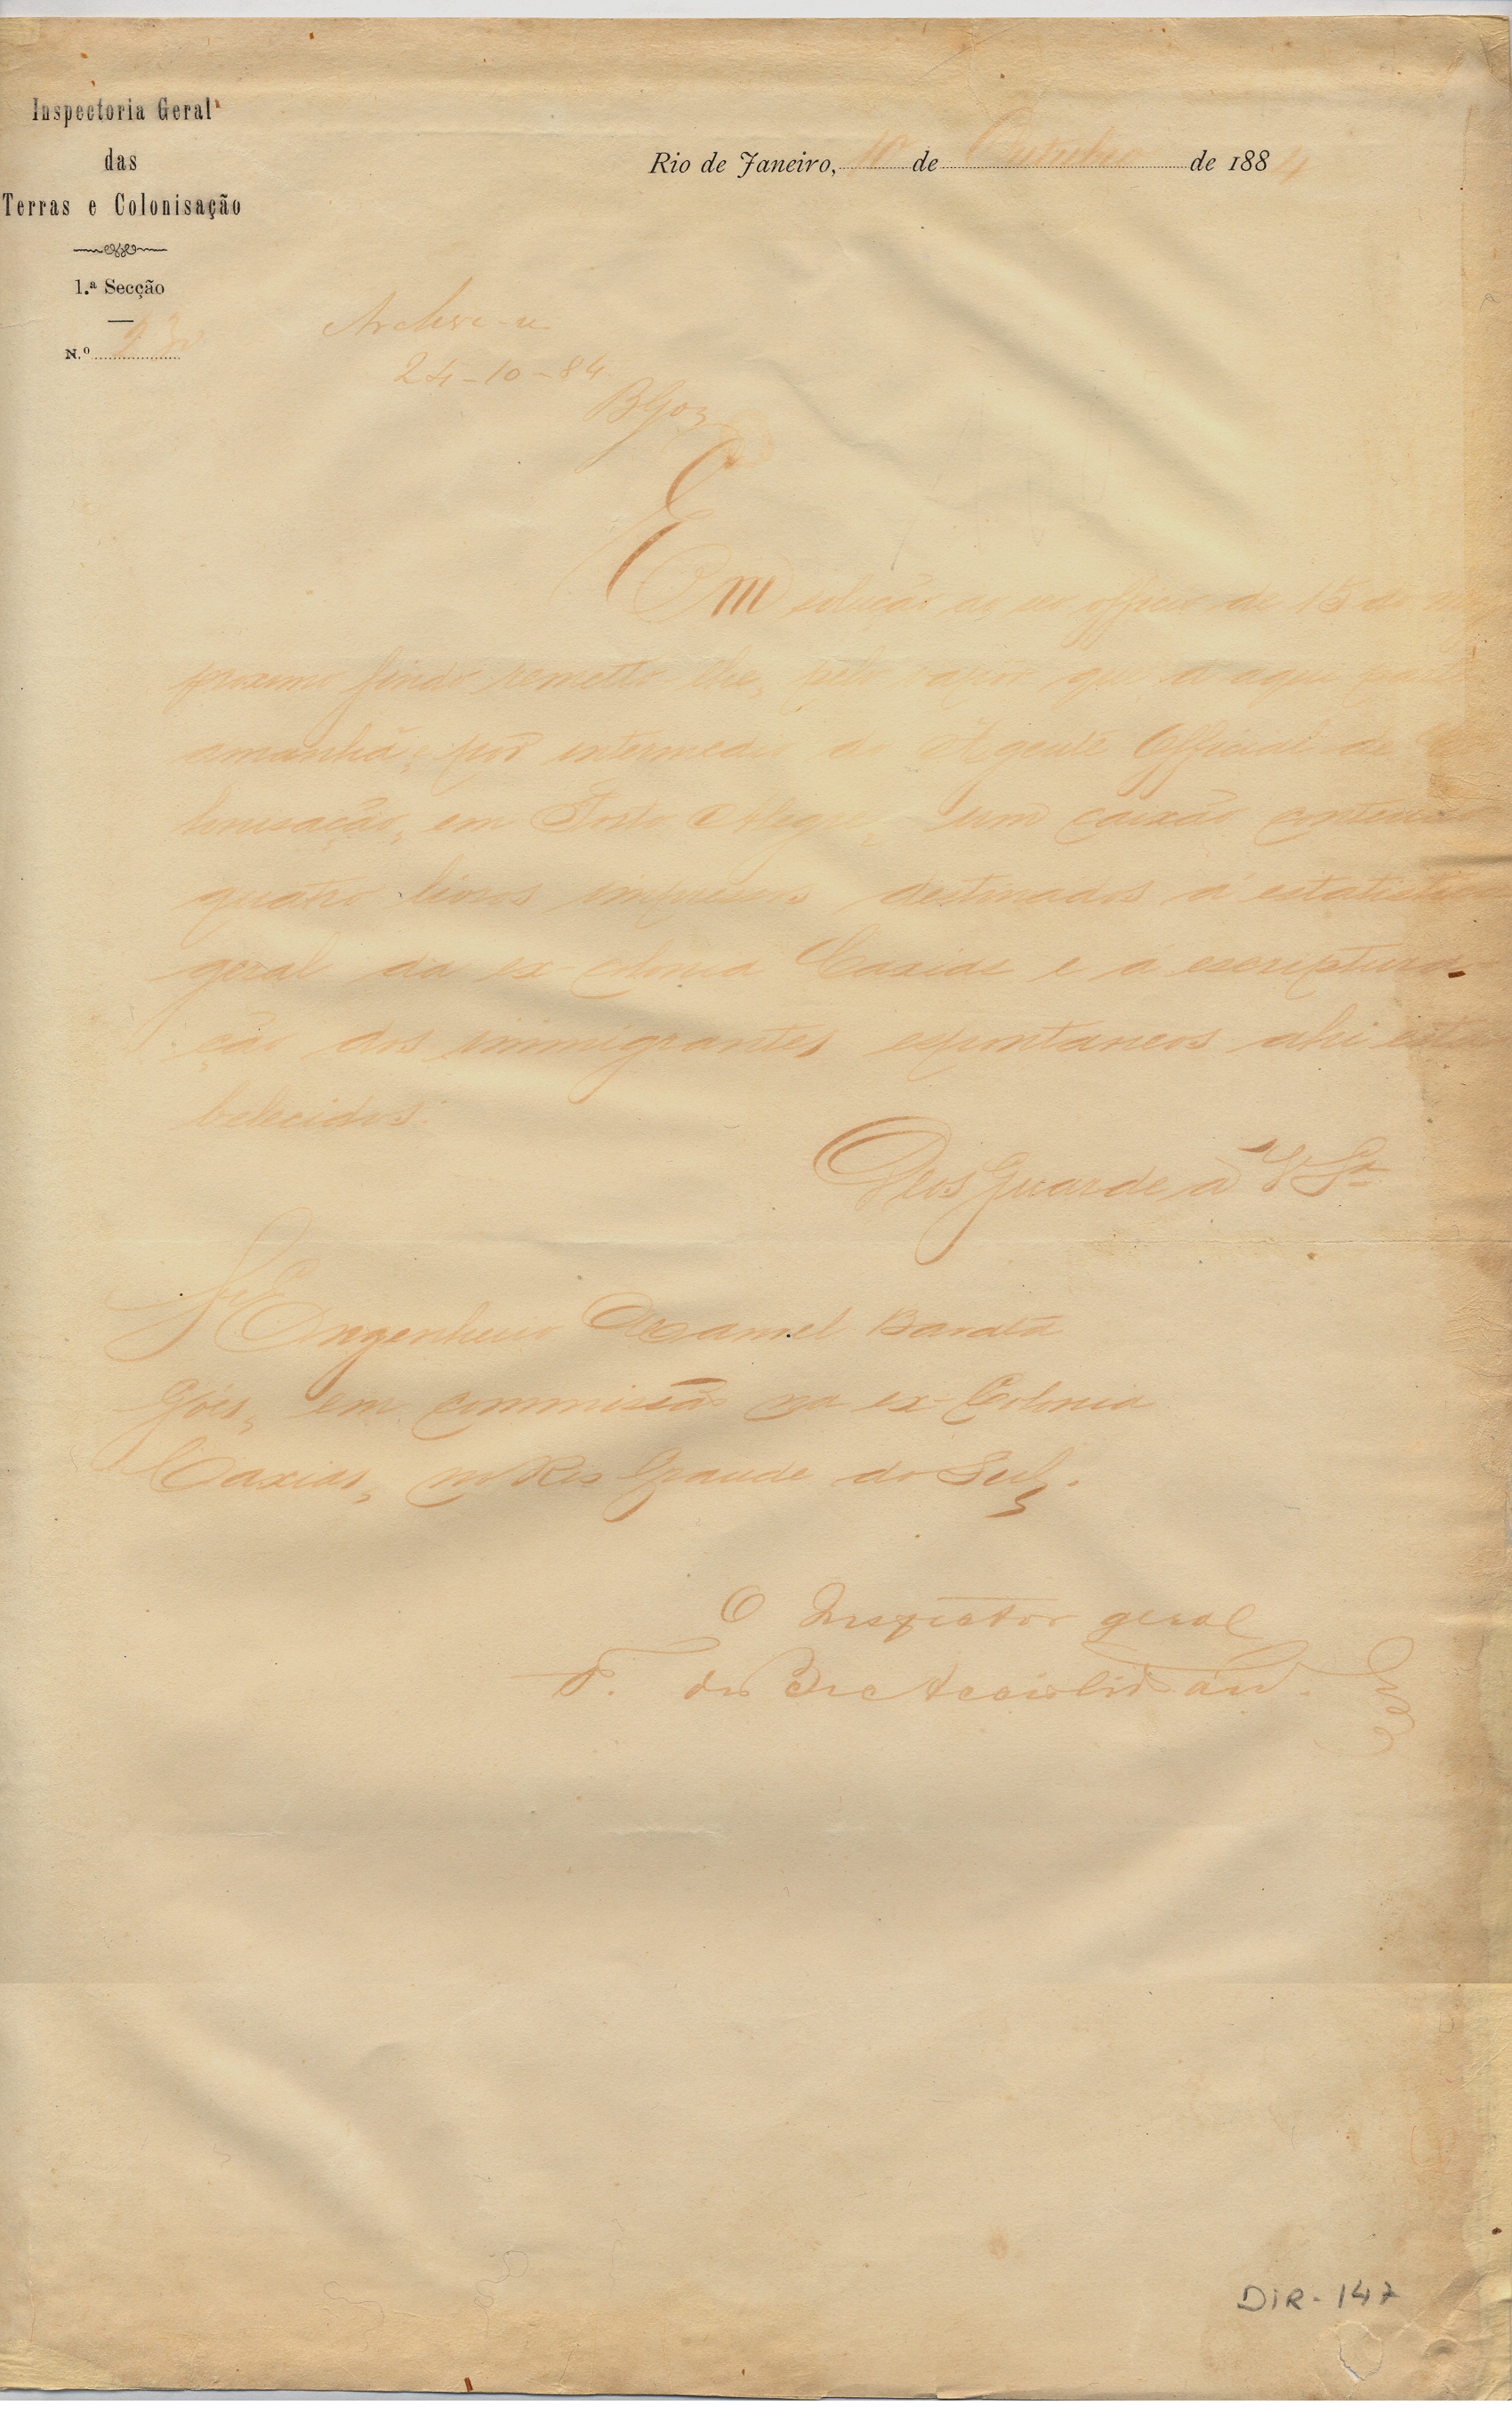 Inspectoria Geral
das
Terras e Colonisação
1.ª Secção
N.º 230
Rio de Janeiro, 10 de Outubro de 1884
Archive-se
24-10-84
BGóes
Em solução ao seo officio de 15 do
proximo findo remetto-lhe, pelo vapor que d'aqui parte
amanhã, e por intermedio do Agente Official de Co-
lonisação, em Porto Alegre, um caixão contendo
quatro livros impressos destinados á estatistica
geral da ex-colonia Caxias e á escriptura-
ção dos immigrantes espontaneos ahi esta-
belecidos.
Deos Guarde a V Sª
Sr Engenheiro Manoel Barata
Góes, em commissão na ex-Colonia
Caxias, no Rio Grande do Sul.
O Inspector geral
F. de B. e Accioli de
DIR-147